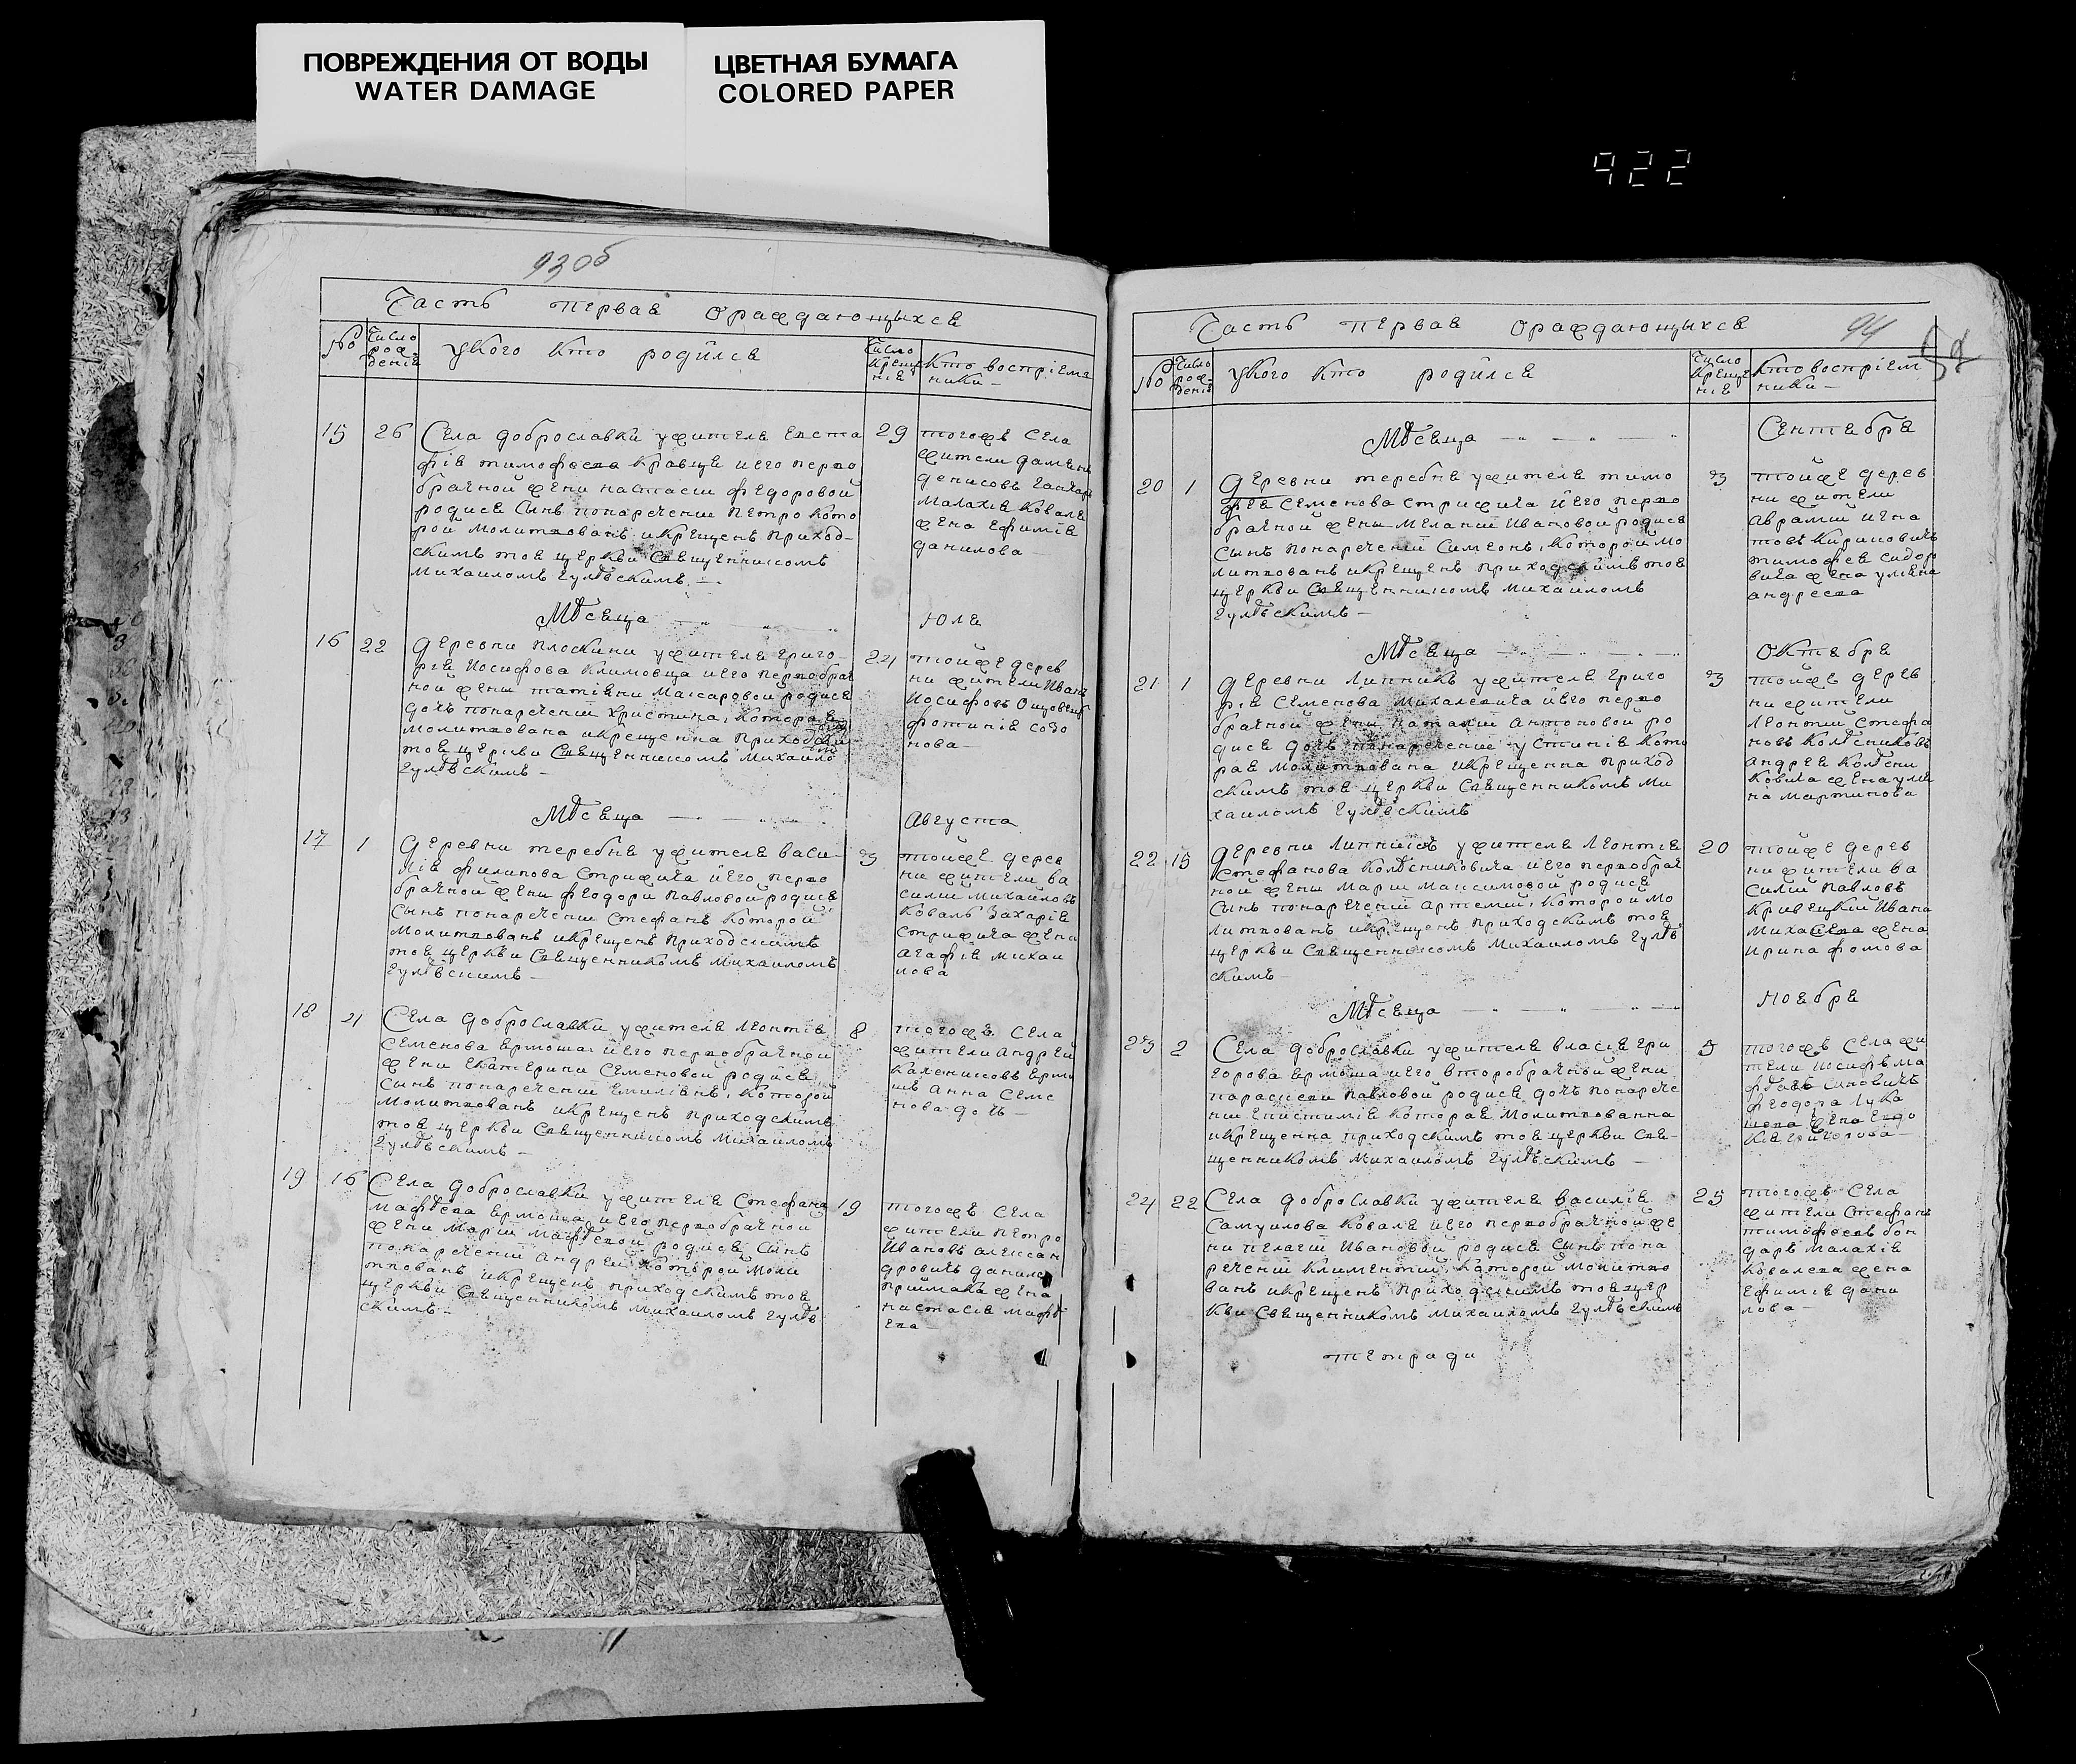 ПОВРЕЖДЕНИЯ ОТ ВОДЫ
WATER DAMAGE
ЦВЕТНАЯ БУМАГА
COLORED PAPER
922
93об
Часть первая ораждающыхся
№
Число рождения
Укого кто родился
Число крещения
Кто восприемники
15 26 29
Села доброславки ужителя Евста
фія тимофеева Кравця иего перво
брачной жени настасіи федоровой
родися Сынъ понаречении Петро кото
рой молитвованъ икрещенъ приход-
скимъ тоя церкви Священникомъ
Михаиломъ Гулѣвскимъ
тогожъ Села
жители дамян
денисовъ
Малахія Коваля
жена Ефимія
данилова
Мѣсяца Юля
16 22 24
деревни плоскини ужителя григо
рія Иосифова Климовца иего первобрач
ной жени татіяни Макаровой родися
дочь понаречении христина, котора
молитвована икрещенна приходски
тоя церкви Священникомъ Михаило
Гулѣвскимъ
тойже дерев
ни жители Иванъ
Иосифовъ
фотинія созо
нова
Мѣсяца Августа
17 1 3
деревни теребня ужителя васи-
лія филипова Стрижича иего перво
брачной жени феодори Павловой родися
Сынъ понаречении Стефанъ которой
молитвованъ икрещенъ приходскимъ
тоя церкви Священникомъ Михаиломъ
Гулѣвскимъ
тойже дерев
ни жители ва
силий Михайловъ
Коваль Захарія
Стрижича жена
агафія михаи
лова
18 4 8
Села доброславки ужителя Леонтія
Семенова Ярмоша, иего первобрачной
жени Екатерини Семеновой родися
Сынъ понаречении Емиліянъ, которой
молитвованъ икрещенъ приходскимъ
тоя церкви Священникомъ Михаиломъ
Гулѣвскимъ
тогожъ Села
жители Андрей
Ярмо
шъ Анна Семе
нова дочь
19 16 19
Села доброславки ужителя Стефана
Мафѣева Ярмоша, иего первобрачной
жени Маріи Мафѣевой родися Сынъ
понаречении андрей которой моли
твованъ икрещенъ приходскимъ тоя
церкви Священникомъ Михаиломъ Гулѣв
скимъ
тогожъ Села
жители Петро
Ивановъ алексан
дровичъ данила
Приймака жена
настасія мафѣ
ева
Часть первая ораждающыхся
94
№
Число рождения
Укого кто родился
Число крещения
Кто восприемники
Мѣсяца Сентября
20 1 3
деревни теребня ужителя тимо
фея Семенова стрижича иего перво
брачной жени Меланіи Ивановой родися
Сынъ понаречении Симеонъ, которой мо
литвованъ икрещенъ приходскимъ тоя
церкви Священникомъ Михаиломъ
Гулѣвскимъ
тойже дерев
ни жители
аврамий игна
товъ Кириловичъ
тимофея сидор
вича жена уляна
андреева
Мѣсяца Октября
21 1 3
деревни Липникъ ужителя григо
рія Семенова Михалевича иего перво
брачной жени наталии антоновой ро
дися дочь понаречении устинія кото
рая молитвована икрещенна приход
скимъ тоя церкви Священникомъ Ми
хаиломъ Гулѣвскимъ
тойже дерев
ни жители
Леонтий Стефа
новъ Колѣсниковъ
андрея Колѣсни
ковича жена уля
на мартинова
22 15 20
деревни Липникъ ужителя Леонтія
Стефанова Колѣсниковича иего первобрач
ной жени Маріи Максимовой родися
Сынъ понаречении Артемий, которой мо
литвованъ икрещенъ приходскимъ тоя
церкви Священникомъ Михаиломъ Гулѣв
скимъ
тойже дерев
ни жители ва
силий Павловъ
Кривецкий Ивана
жена
Ирина фомова
Мѣсяца Ноября
23 2 5
Села доброславки ужителя власія гри
горова Ярмоша иего второбрачной жени
параскеви Павловой родися дочь понарече
нии Епистимія которая молитвованна
икрещенна приходскимъ тоя церкви Свя-
щенникомъ Михаиломъ Гулѣвскимъ
тогожъ Села жи
тели Иосифъ Ма
фѣевъ
феодора Лука
шева жена Евдо
кія григорова
24 22 25
Села доброславки ужителя василія
Самуилова Коваля иего первобрачной же
ни пелагіи Ивановой родися Сынъ пона
речении Климентий, которой молитво
ванъ икрещенъ приходскимъ тоя цер
кви Священникомъ Михаиломъ Гулѣвскимъ
тогожъ Села
жители Стефанъ
тимофеевъ бон
даръ Малахія
Ковалева жена
Ефимія дани
лова
тетради